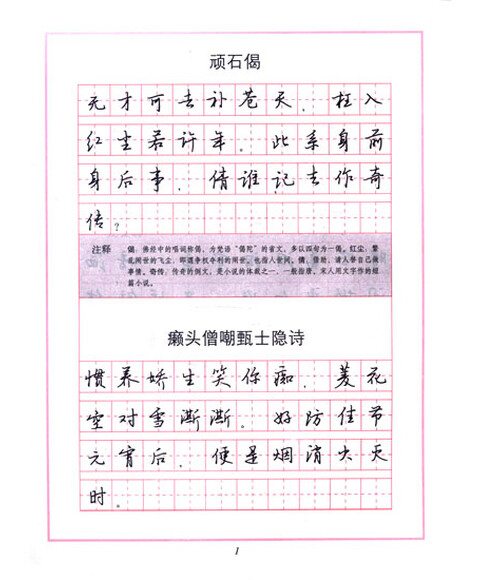 顽石偈
无才可去补苍天，枉入
红尘若许年。此系身前
身后事，倩谁记去作奇
传？
注释
偈：佛经中的唱词称偈，为梵语“偈陀”的省文，多以四句为一偈。红尘：繁
花闹世的飞尘，即谓争权夺利的闹世。也指人世间。倩，借助，请人替自己做
事情。奇传，传奇的倒文，是小说的体裁之一，一般指唐、宋人用文字作的短
篇小说。
癞头僧嘲甄士隐诗
惯养娇生笑你痴，菱花
空对雪澌澌。好防佳节
元宵后，便是烟消火灭
时。
1